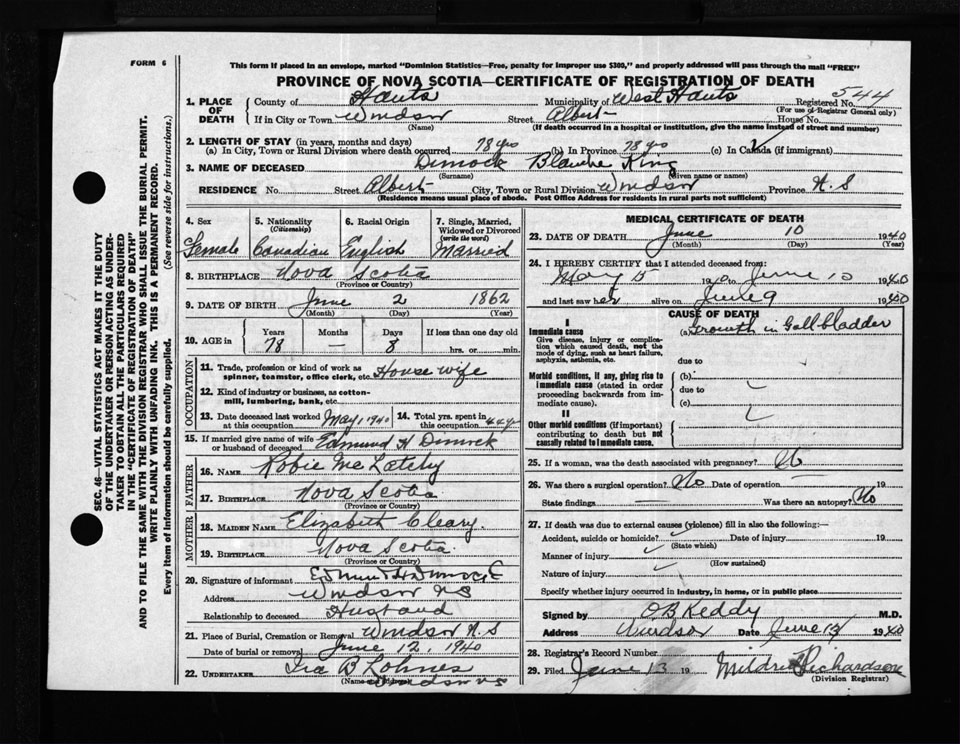 FORM 6
This form if placed in an envelope, marked "Dominion Statistics—Free, penalty for improper use $300," and properly addressed will pass through the mail "FREE"
PROVINCE OF NOVA SCOTIA—CERTIFICATE OF REGISTRATION OF DEATH
544
1. PLACE OF DEATH County of Hants Municipality of West Hants Registered No.
(For use of Registrar General only)
If in City or Town Windsor Street Albert House No.
(Name) (If death occurred in a hospital or institution, give the name instead of street and number)
2. LENGTH OF STAY (in years, months and days)
(a) In City, Town or Rural Division where death occurred 78 yrs (b) In Province 78 yrs (c) In Canada (if immigrant)
3. NAME OF DECEASED Dimock Blanche King
(Surname) (Given name or names)
RESIDENCE No. Street Albert City, Town or Rural Division Windsor Province N.S
(Residence means usual place of abode. Post Office Address for residents in rural parts not sufficient)
SEC. 46—VITAL STATISTICS ACT MAKES IT THE DUTY
OF THE UNDERTAKER OR PERSON ACTING AS UNDER-
TAKER TO OBTAIN ALL THE PARTICULARS REQUIRED
IN THE "CERTIFICATE OF REGISTRATION OF DEATH"
AND TO FILE THE SAME WITH THE DIVISION REGISTRAR WHO SHALL ISSUE THE BURIAL PERMIT.
WRITE PLAINLY WITH UNFADING INK. THIS IS A PERMANENT RECORD.
Every item of Information should be carefully supplied. (See reverse side for instructions.)
4. Sex 5. Nationality (Citizenship) 6. Racial Origin 7. Single, Married, Widowed or Divorced (write the word)
Female Canadian English Married
8. BIRTHPLACE Nova Scotia
(Province or Country)
9. DATE OF BIRTH June 2 1862
(Month) (Day) (Year)
10. AGE in Years Months Days If less than one day old
78 — 8 hrs. or min.
OCCUPATION
11. Trade, profession or kind of work as spinner, teamster, office clerk, etc. House wife
12. Kind of industry or business, as cotton-mill, lumbering, bank, etc.
13. Date deceased last worked at this occupation May, 1940 14. Total yrs. spent in this occupation 44 yrs
15. If married give name of wife or husband of deceased Edmund H Dimock
FATHER
16. NAME Robie Mc Latchy
17. BIRTHPLACE Nova Scotia
(Province or Country)
MOTHER
18. MAIDEN NAME Elizabeth Cleary.
19. BIRTHPLACE Nova Scotia.
(Province or Country)
20. Signature of informant Edmund H Dimock
Address Windsor NS
Relationship to deceased Husband
21. Place of Burial, Cremation or Removal Windsor N.S
Date of burial or removal June 12, 1940
22. UNDERTAKER Ira B Lohnes
(Name and address) Windsor NS
MEDICAL CERTIFICATE OF DEATH
23. DATE OF DEATH June 10 1940
(Month) (Day) (Year)
24. I HEREBY CERTIFY that I attended deceased from:
May 15 1940 to June 10 1940
and last saw her alive on June 9 1940
CAUSE OF DEATH
I
Immediate cause (a) Growth in Gall bladder
Give disease, injury or complication which caused death, not the mode of dying, such as heart failure, asphyxia, asthenia, etc.
due to
Morbid conditions, if any, giving rise to immediate cause (stated in order proceeding backwards from immediate cause).
(b)
due to
(c)
II
Other morbid conditions (if important) contributing to death but not causally related to immediate cause.
25. If a woman, was the death associated with pregnancy? No
26. Was there a surgical operation? No Date of operation — 19
State findings — Was there an autopsy? No
27. If death was due to external causes (violence) fill in also the following:—
Accident, suicide or homicide? Date of injury 19
(State which)
Manner of injury
(How sustained)
Nature of injury
Specify whether injury occurred in industry, in home, or in public place
Signed by O B Keddy M.D.
Address Windsor Date June 13 1940
28. Registrar's Record Number
29. Filed June 13 19 Mildred Richardson
(Division Registrar)